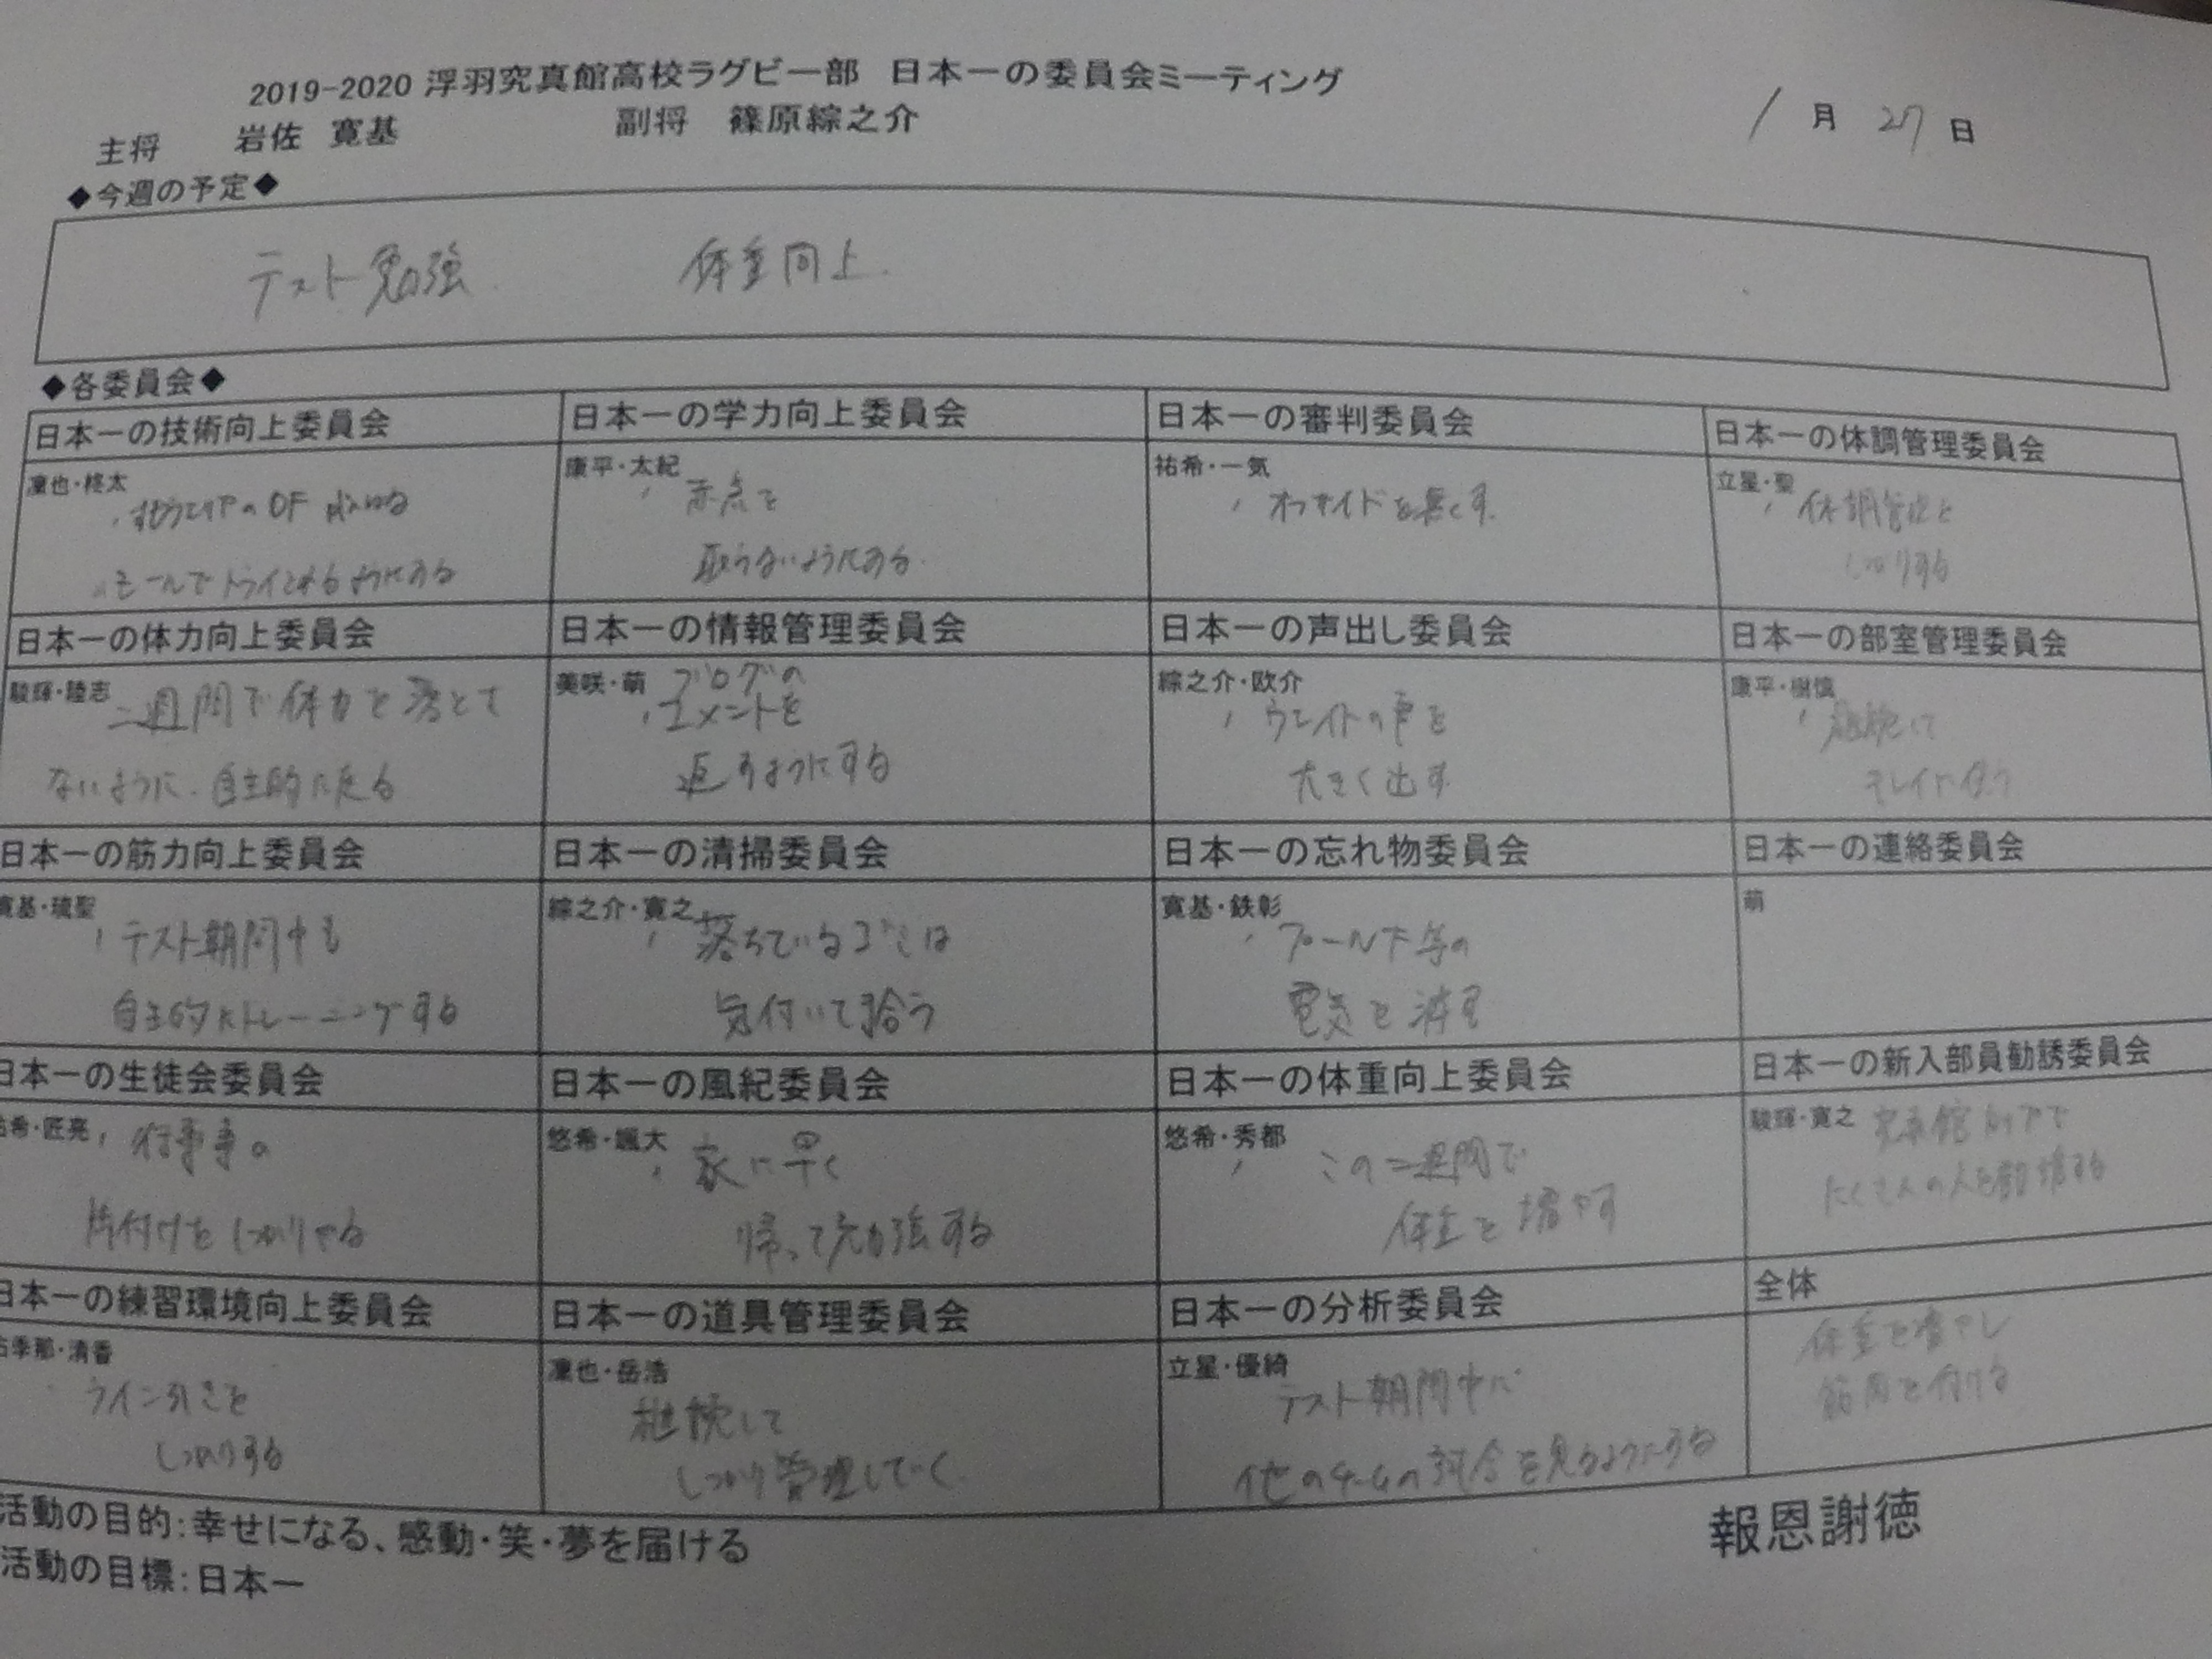 2019-2020 浮羽究真館高校ラグビー部 日本一の委員会ミーティング
主将 岩佐 寛基 副将 篠原綜之介 1月 27日
◆今週の予定◆
テスト勉強 体重向上
◆各委員会◆
日本一の技術向上委員会
凜也・柊太
モールでトライとれるようにする
日本一の学力向上委員会
康平・太紀
赤点を
取らないようにする
日本一の審判委員会
祐希・一気
オフサイドを無くす
日本一の体調管理委員会
立星・聖
体調管理を
しっかりする
日本一の体力向上委員会
駿輝・陸志
二週間で体力を落として
ないように、自主的に走る
日本一の情報管理委員会
美咲・萌
ブログの
コメントを
返すようにする
日本一の声出し委員会
綜之介・欧介
ウエイトの声を
大きく出す
日本一の部室管理委員会
康平・樹慎
継続して
キレイに使う
日本一の筋力向上委員会
寛基・琉聖
テスト期間中も
自主的にトレーニングする
日本一の清掃委員会
綜之介・寛之
落ちているゴミは
気付いて拾う
日本一の忘れ物委員会
寛基・鉄彰
プール下等の
電気を消す
日本一の連絡委員会
萌
日本一の生徒会委員会
希・匠亮
行事事の
片付けをしっかりやる
日本一の風紀委員会
悠希・颯大
家に早く
帰って勉強する
日本一の体重向上委員会
悠希・秀都
この二週間で
体重を増やす
日本一の新入部員勧誘委員会
駿輝・寛之
究真館カップで
たくさんの人を勧誘する
日本一の練習環境向上委員会
季那・清香
ライン引きを
しっかりする
日本一の道具管理委員会
凜也・岳浩
継続して
しっかり管理していく
日本一の分析委員会
立星・優綺
テスト期間中に
他のチームの試合を見るようにする
全体
体重を増やし
筋肉を付ける
活動の目的:幸せになる、感動・笑・夢を届ける
活動の目標:日本一
報恩謝徳